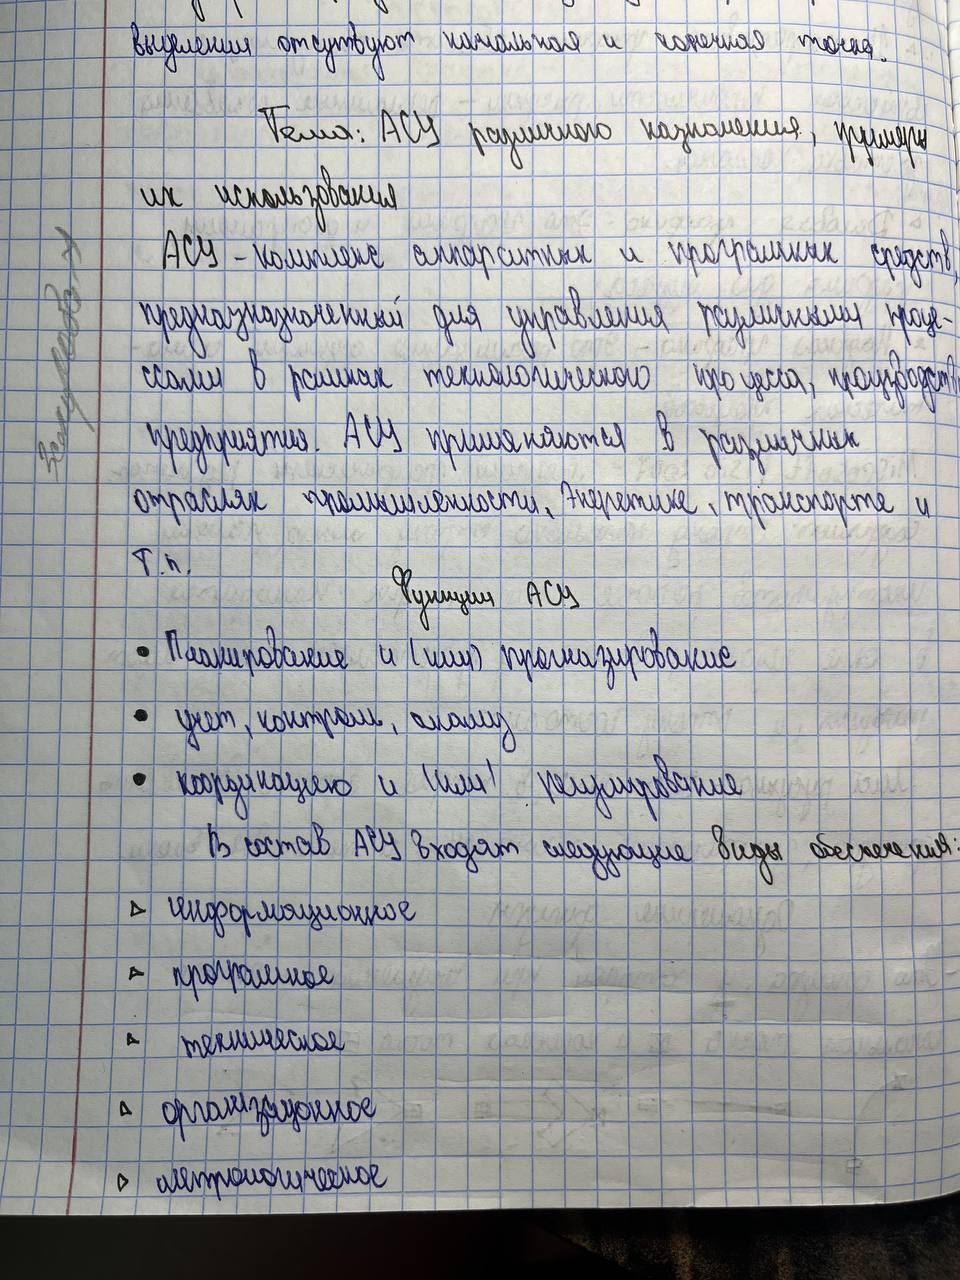 выделения отсутствуют начальная и конечная точка.
Тема: АСУ различного назначения, примеры
их использования
АСУ - комплекс аппаратных и програмных средств,
предназназначенный для управления различными проце-
ссами в рамках технологического процесса, производства
предприятия. АСУ применяются в различных
отраслях промышленности, Энергетике, транспорте и
т.п.
Функции АСУ
• Планирование и (или) прогназирование
• учет, контроль, анализ
• координацию и (или) регулирование
В состав АСУ входят следующие виды обеспечения:
▵ информационное
▵ програмное
▵ техническое
▵ организационное
▵ метрологическое